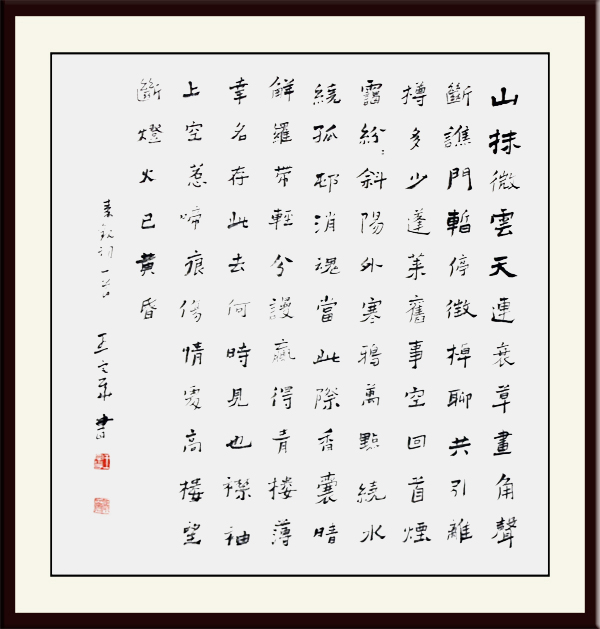 山抹微雲天連衰草畫角聲
斷譙門暫停徵棹聊共引離
樽多少蓬萊舊事空回首煙
靄紛:斜陽外寒鴉萬點繞水
繞孤邨消魂當此際香囊暗
解羅帶輕分謾贏得青樓薄
幸名存此去何時見也襟袖
上空惹啼痕傷情處高樓望
斷燈火已黃昏
秦觀詞一首 書